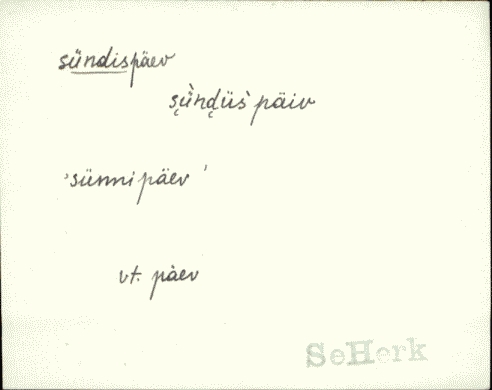 sündispäev
s̬ǜnd̬üs̀päiv
'sünnipäev'
vt. päev
SeHerk